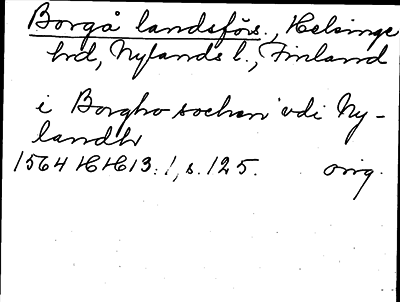 Borgå landsförs., Helsinge
hrd, Nylands l., Finland
i Borgho sochen vdi Ny-
landh
1564 HH13:1, s. 125. orig.